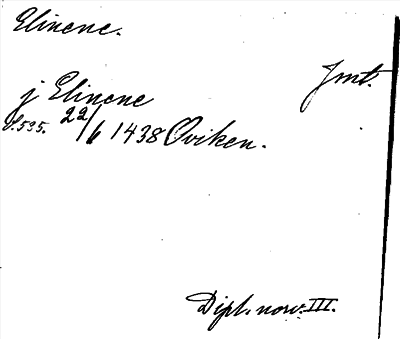 Elinene.
Jmt.
j Elinene
S. 535. 22/6 1438 Oviken.
Dipl. norv. III.